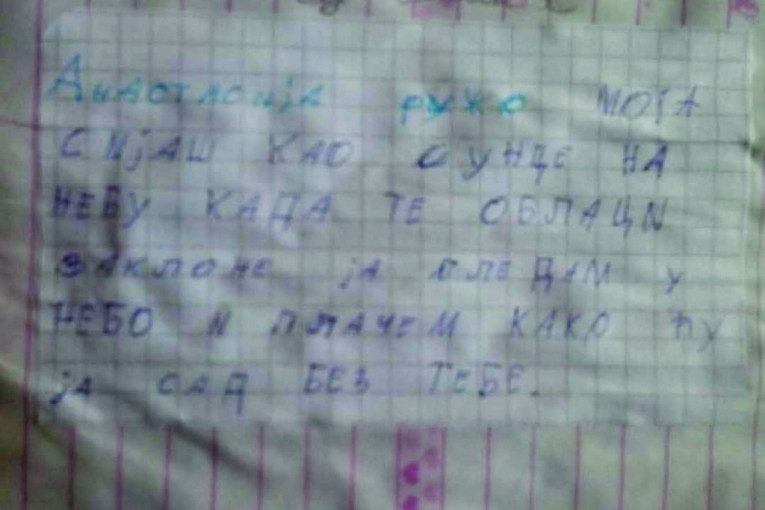 Анастасија ружо моја
сијаш као сунце на
небу када те облаци
заклоне ја гледам у
небо и плачем како ћу
ја сад без тебе.